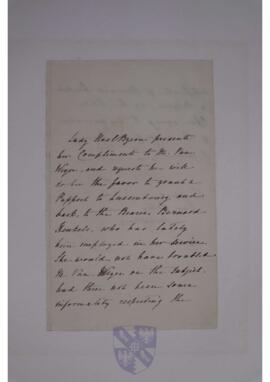 Lady Noel Byron presents
her Compliments to M. Van
Weyer, and requests he will
do her the favor to grant a
Passport to Luxembourg and
back, to the Bearer, Bernard
who has lately
been employed in her service.
She would not have troubled
M. Van Weyer on the subject,
had there not been some
informality respecting the